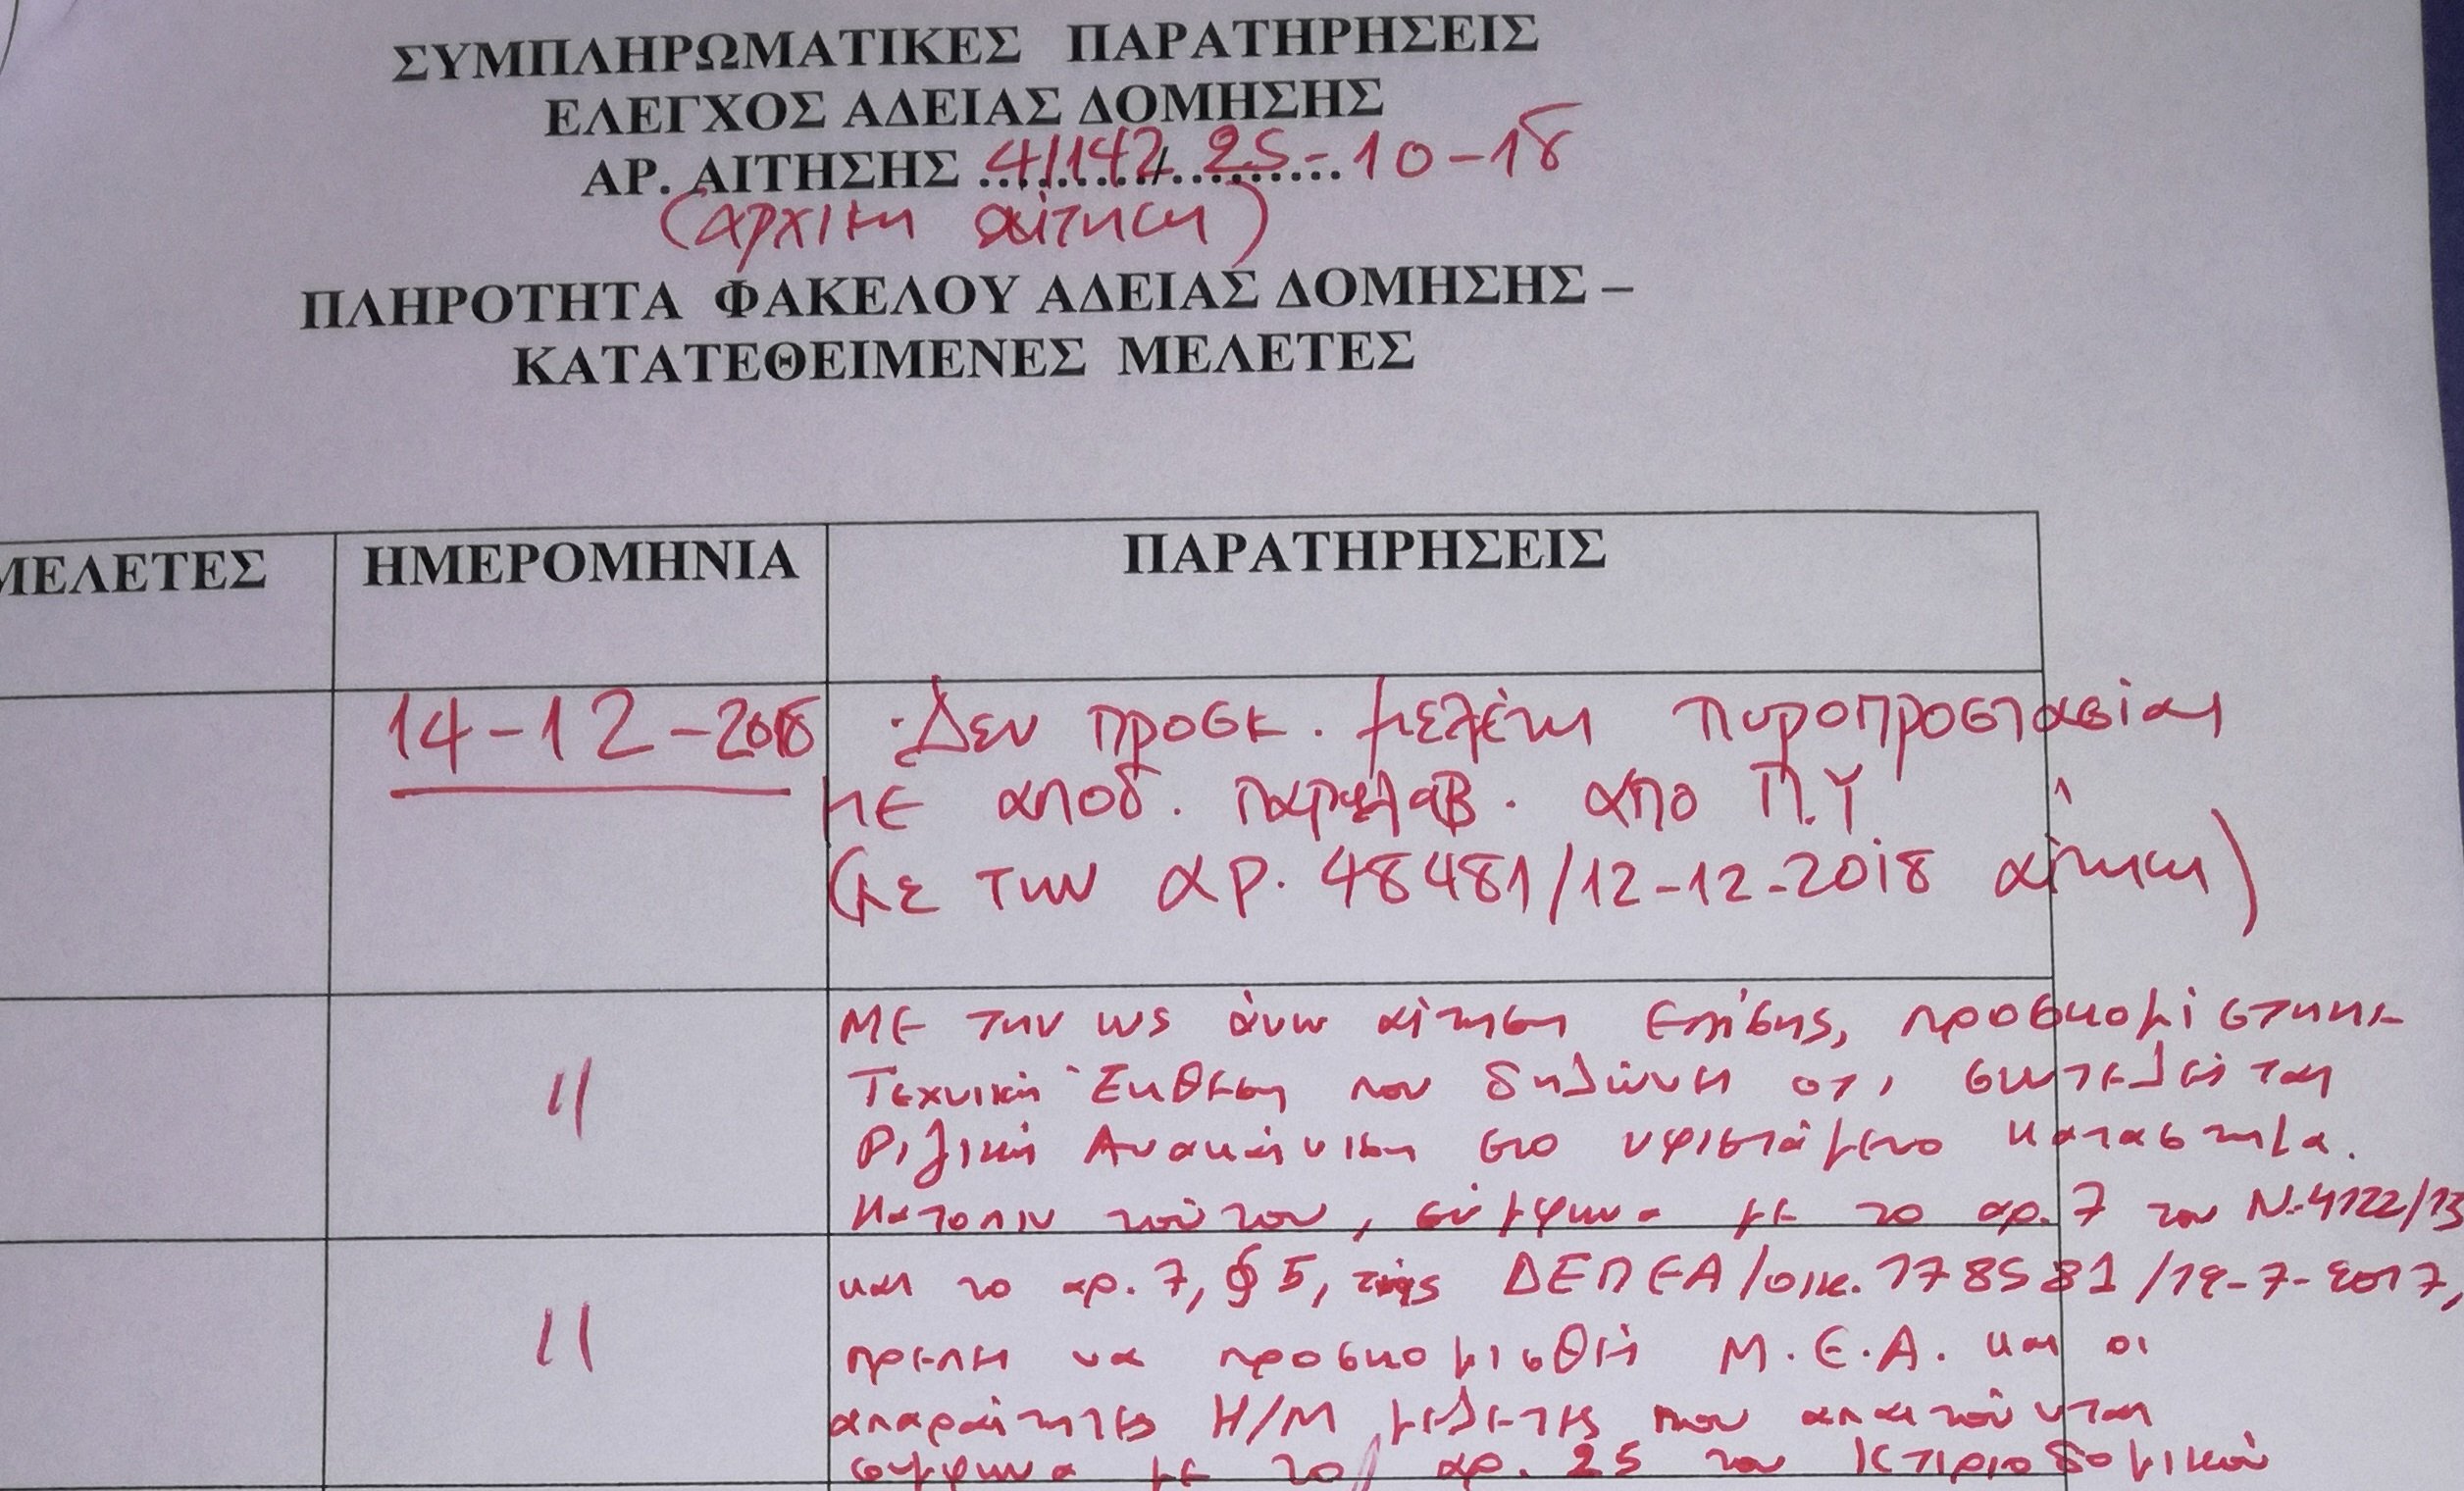 ΣΥΜΠΛΗΡΩΜΑΤΙΚΕΣ ΠΑΡΑΤΗΡΗΣΕΙΣ
ΕΛΕΓΧΟΣ ΑΔΕΙΑΣ ΔΟΜΗΣΗΣ
ΑΡ. ΑΙΤΗΣΗΣ 41142 25-10-18
(αρχικη αίτηση)
ΠΛΗΡΟΤΗΤΑ ΦΑΚΕΛΟΥ ΑΔΕΙΑΣ ΔΟΜΗΣΗΣ –
ΚΑΤΑΤΕΘΕΙΜΕΝΕΣ ΜΕΛΕΤΕΣ
ΜΕΛΕΤΕΣ ΗΜΕΡΟΜΗΝΙΑ ΠΑΡΑΤΗΡΗΣΕΙΣ
14-12-2018
·Δεν προσκ. μελέτη πυροπροστασίας
με αποδ. παραλαβ. απο Π.Υ
(με την αρ. 48481/12-12-2018 αίτηση)
"
Με την ως άνω αίτηση επίσης, προσκομίστηκε
Τεχνική Έκθεση που δηλώνει οτι συντελείται
Ριζική Ανακαίνιση στο υφιστάμενο κατάστημα.
Κατόπιν τούτου, σύμφωνα με το αρ. 7 του Ν.4122/13
"
και το αρ. 7, § 5, της ΔΕΠΕΑ/οικ.178581/12-7-2017,
πρέπει να προσκομισθεί Μ.Ε.Α. και οι
απαραίτητες Η/Μ μελέτες που απαιτούνται
σύμφωνα με το αρ. 25 του Κτιριοδομικού